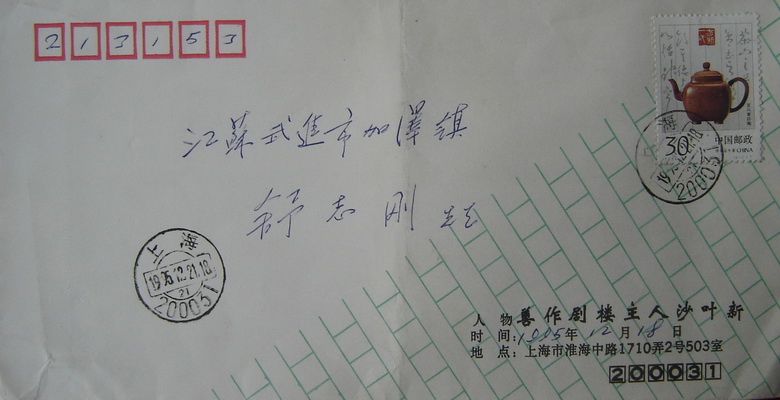 213153
30
中国邮政
CHINA
江苏武进市加泽镇
舒志刚
上海
1995.12.21.18
21
200031
上海
1995.12.21.18
200031
人物 善作剧楼主人沙叶新
时间: 1995年12月18日
地点: 上海市淮海中路1710弄2号503室
200031